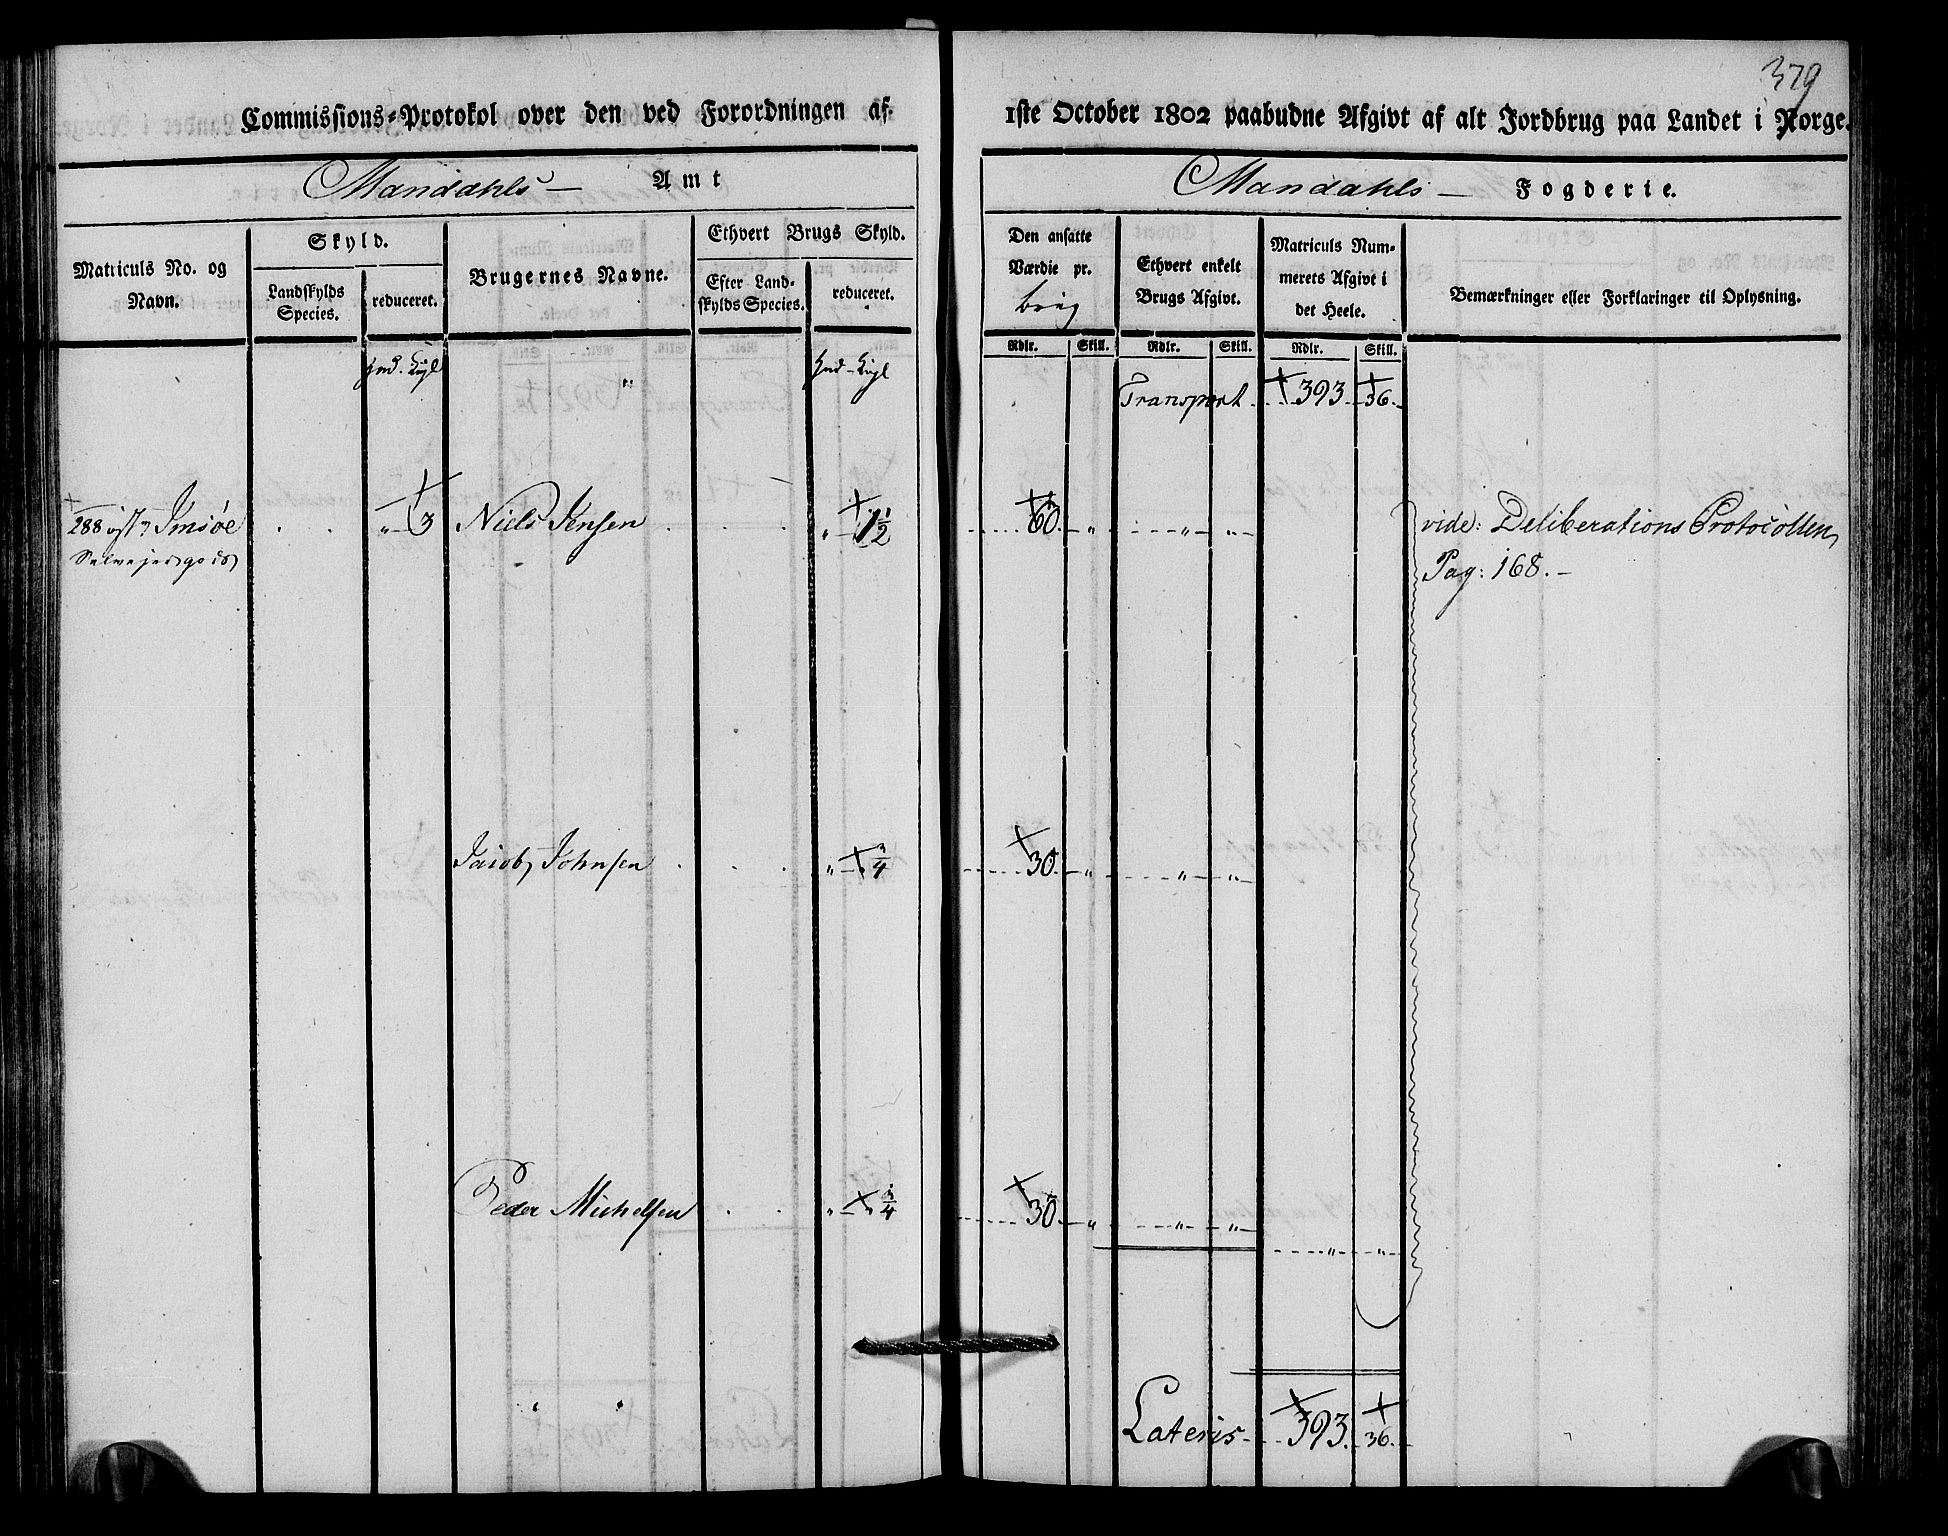 379
Commissions-Protokol over den ved Forordningen af 1ste October 1802 paabudne Afgivt af alt Jordbrug paa Landet i Norge.
Mandahls – Amt
Mandahls – Fogderie.
Matriculs No. og Navn.
Skyld.
Landskylds Species.
reduceret.
Brugernes Navne.
Ethvert Brugs Skyld.
Efter Landskylds Species.
reduceret.
Den ansatte Værdie pr. brug
Ethvert enkelt Brugs Afgivt.
Matriculs Nummerets Afgivt i det Heele.
Bemærkninger eller Forklaringer til Oplysning.
Rdlr. Skill. Rdlr. Skill. Rdlr. Skill.
Hud. " Hud -
Transport 393 36.
288 Imsøe " 3 Niels Jensen " 1 1/2 60 " " " vide: Deliberations Protocollen
Selvejergods Pag: 168. –
Jacob Johnsen " " 3/4 30 " " "
Peder Michelsen " " 3/4 30 " " "
" "
Lateris 393. 36.